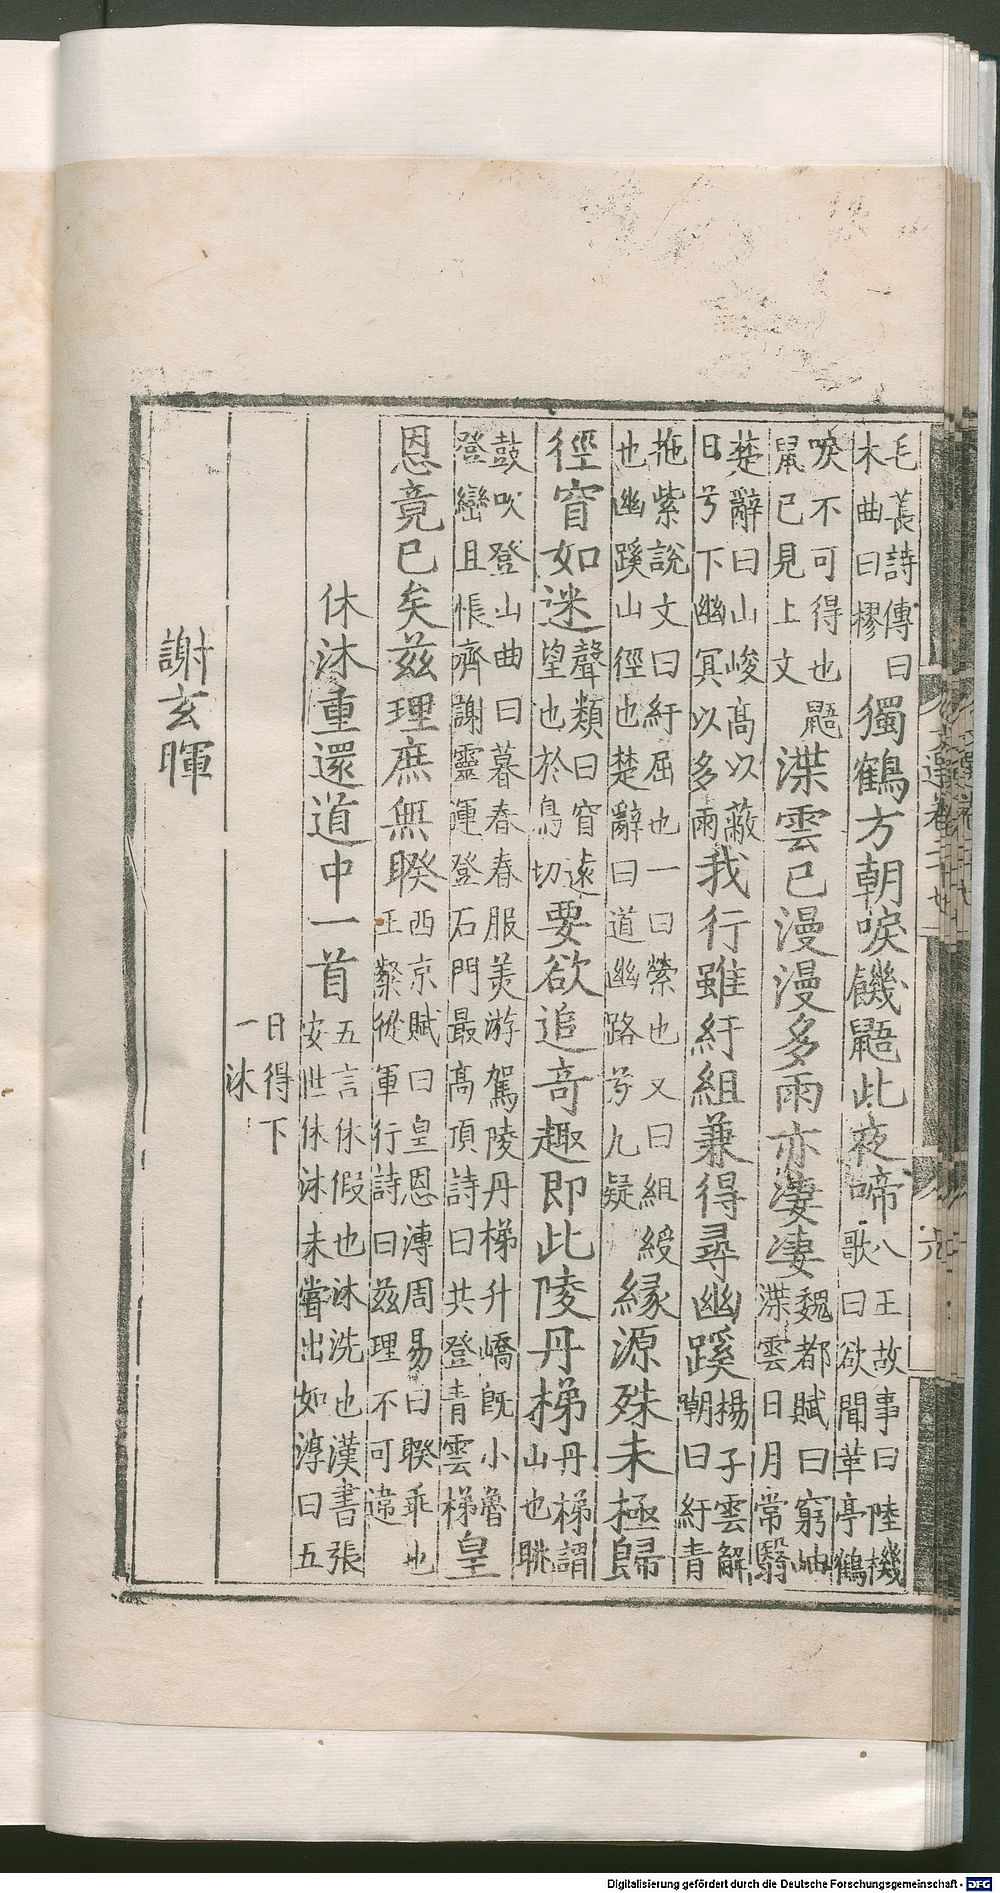 毛萇詩傳曰
木曲曰樛
獨鶴方朝唳饑鼯此夜啼
八王故事曰陸機
歌曰欲聞華亭鶴
唳不可得也鼯
鼠已見上文
渫雲已漫漫多雨亦淒淒
魏都賦曰窮岫
渫雲日月常翳
楚辭曰山峻高以蔽
日兮下幽冥以多雨
我行雖紆組兼得尋幽蹊
揚子雲解
嘲曰紆青
拖紫說文曰紆屈也一曰縈也又曰組綬
也幽蹊山徑也楚辭曰道幽路兮九疑
緣源殊未極歸
徑窅如迷
聲類曰窅遠
望也於鳥切
要欲追奇趣即此陵丹梯
丹梯謂
山也眺
鼓吹登山曲曰暮春春服美游駕陵丹梯升嶠既小魯
登巒且悵齊謝靈運登石門最高頂詩曰共登青雲梯
皇
恩竟已矣茲理庶無睽
西京賦曰皇恩溥周易曰睽乖也
王粲從軍行詩曰茲理不可違
休沐重還道中一首
五言休假也沐洗也漢書張
安世休沐未嘗出如淳曰五
日得下
一沐
謝玄暉
Digitalisierung gefördert durch die Deutsche Forschungsgemeinschaft - DFG